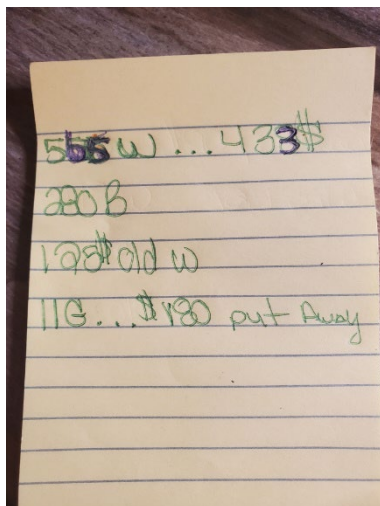 555 W ... 433$
280 B
128$ old W
11G... $180 put Away